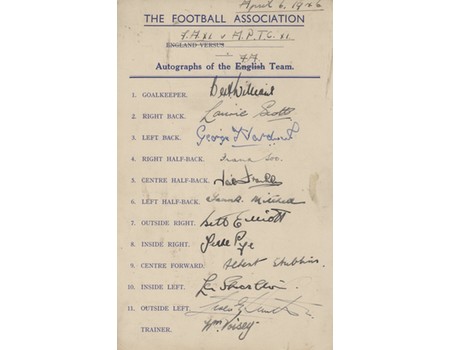 April 6, 1946
THE FOOTBALL ASSOCIATION
F.A XI v A.P.T.C. XI
ENGLAND VERSUS
F.A
Autographs of the English Team.
1. GOALKEEPER. Bert Williams
2. RIGHT BACK. Laurie Scott
3. LEFT BACK. George Hardwick
4. RIGHT HALF-BACK. Frank Soo
5. CENTRE HALF-BACK.
6. LEFT HALF-BACK. Frank Mitchell
7. OUTSIDE RIGHT. Elliott
8. INSIDE RIGHT. Jesse Pye
9. CENTRE FORWARD. Albert Stubbins
10. INSIDE LEFT.
11. OUTSIDE LEFT. Smith
TRAINER. Wm. Voisey